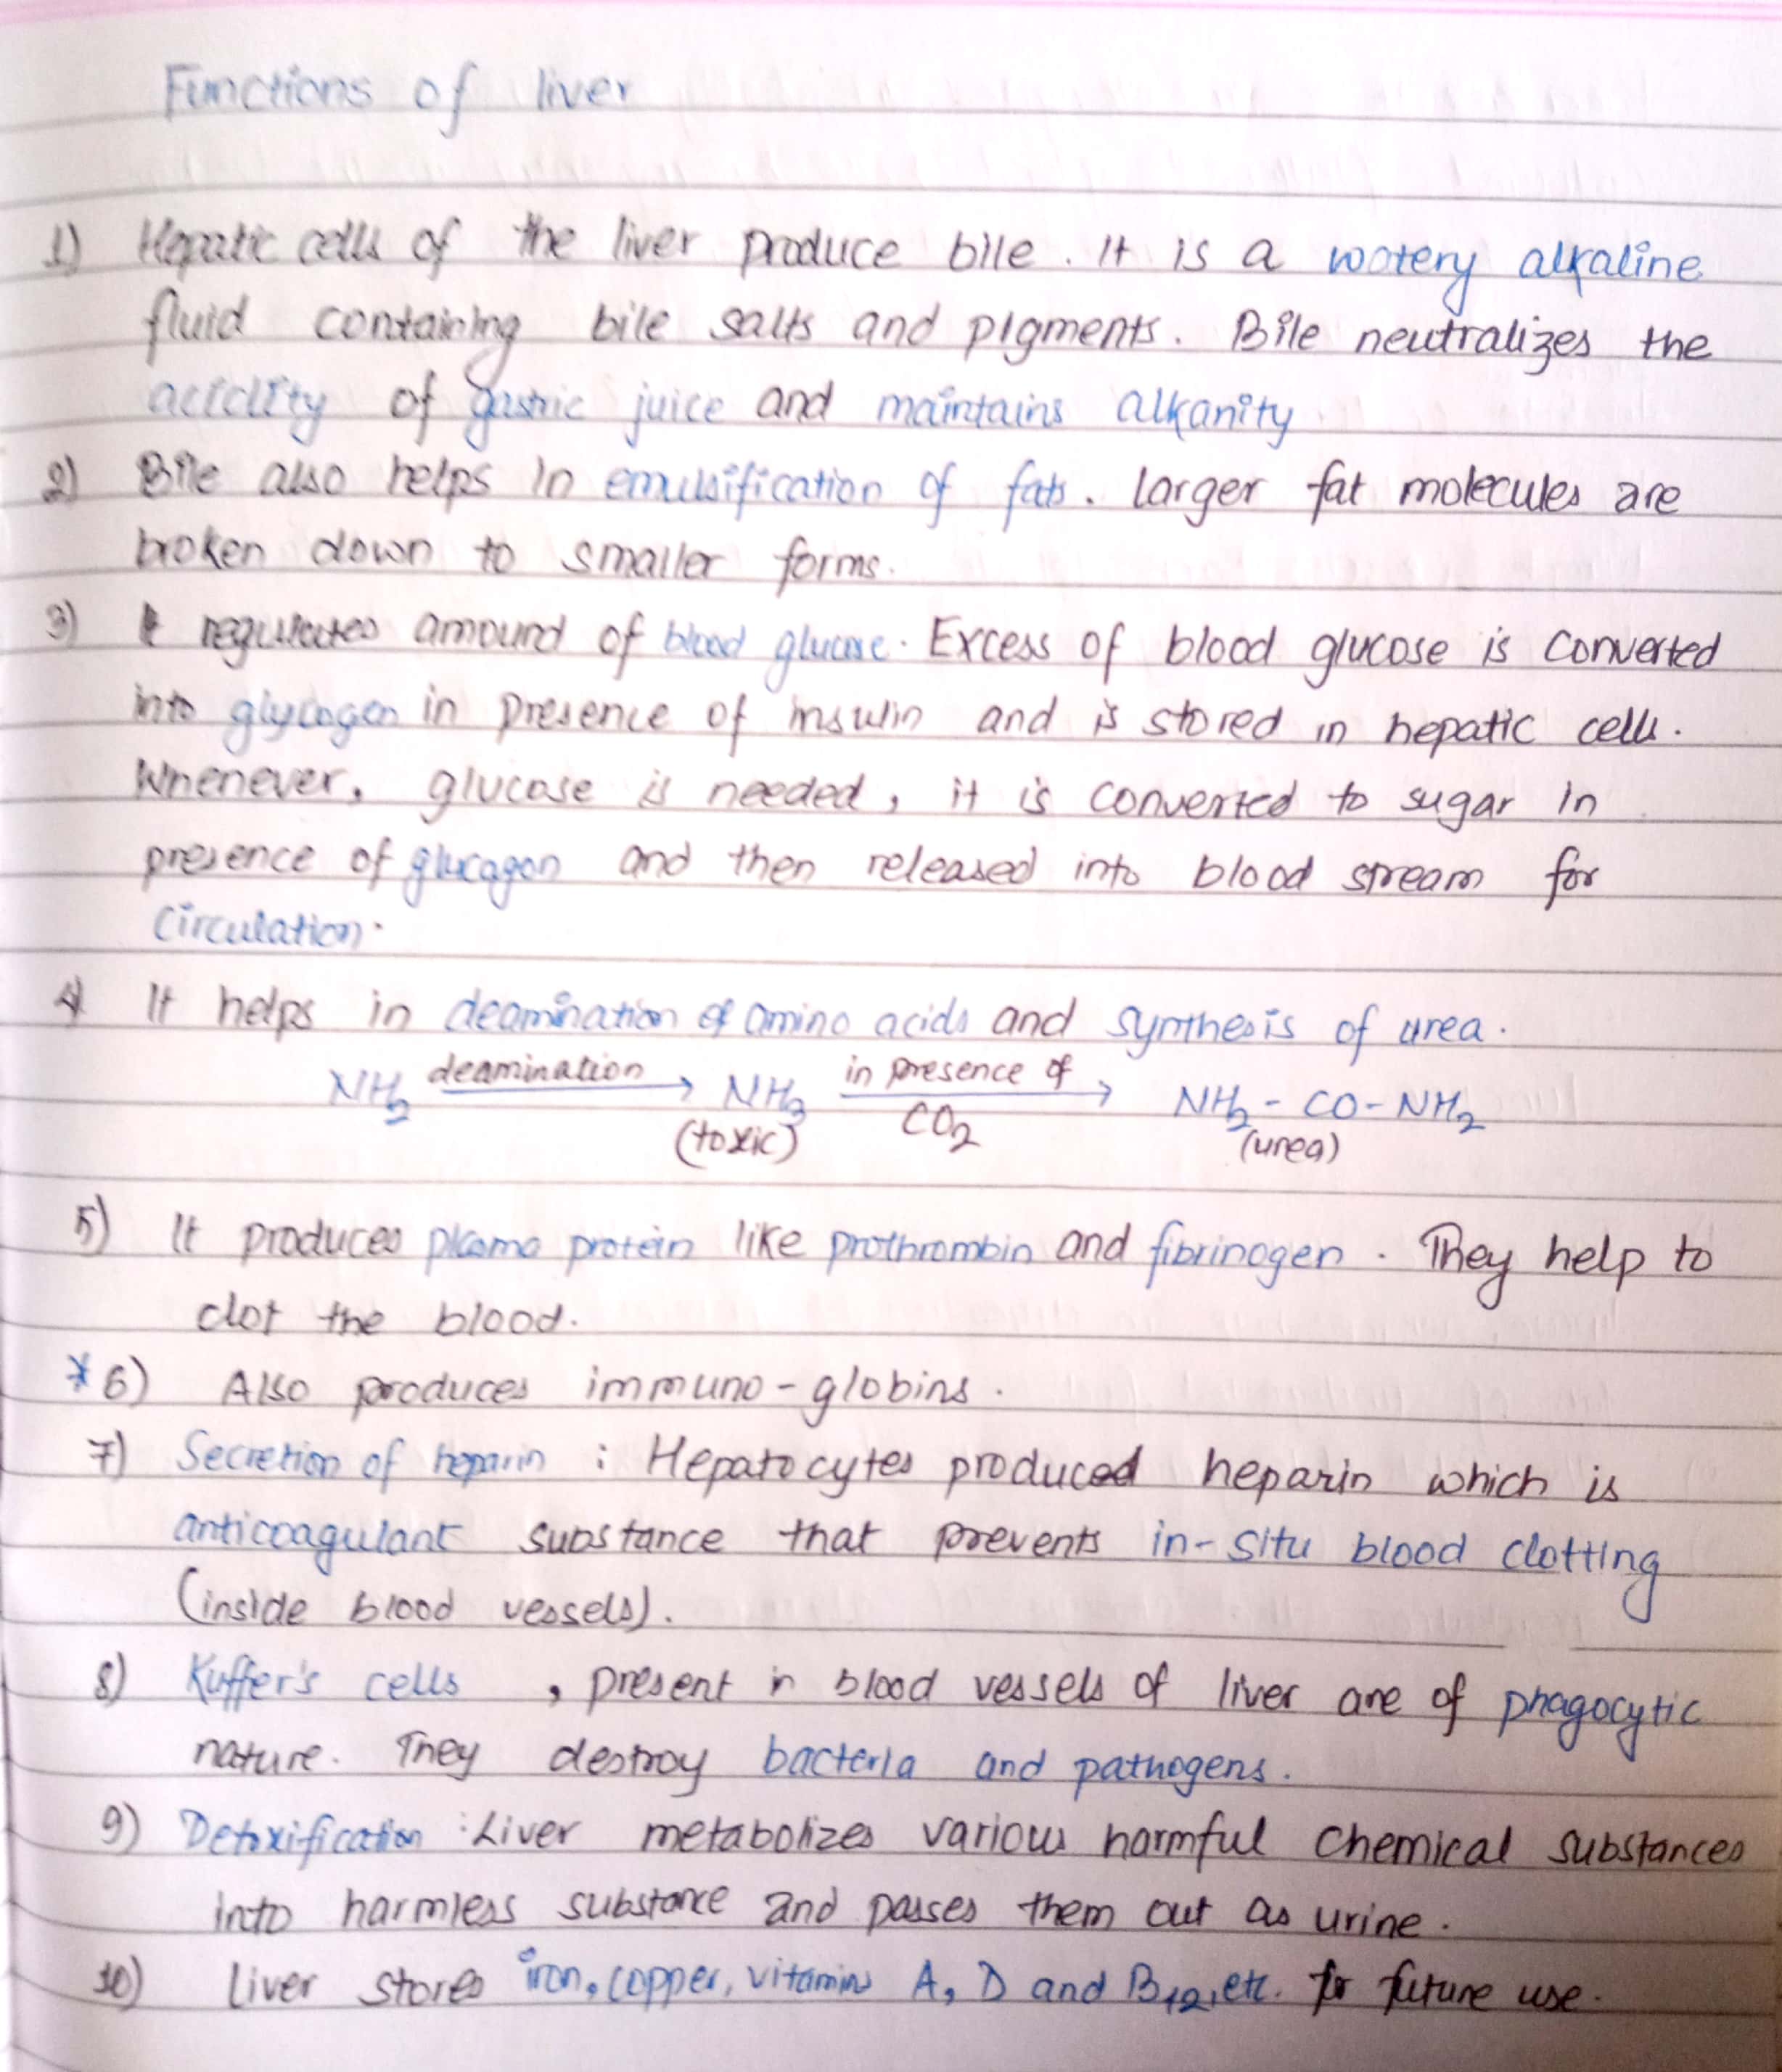 Functions of liver
1) Hepatic cells of the liver produce bile. It is a watery alkaline
fluid containing bile salts and pigments. Bile neutralizes the
acidity of gastric juice and maintains alkanity
2) Bile also helps in emulsification of fats. Larger fat molecules are
broken down to smaller forms.
3) It regulates amound of blood glucose. Excess of blood glucose is converted
into glycogen in presence of insulin and is stored in hepatic cells.
Whenever, glucose is needed, it is converted to sugar in
presence of glucagon and then released into blood stream for
circulation.
4) It helps in deamination of amino acids and synthesis of urea.
NH₂ deamination → NH₃ in presence of → NH₂ - CO - NH₂
(toxic) CO₂ (urea)
5) It produces plasma protein like prothrombin and fibrinogen. They help to
clot the blood.
* 6) Also produces immuno-globins.
7) Secretion of heparin : Hepatocytes produced heparin which is
anticoagulant substance that prevents in-situ blood clotting
(inside blood vessels).
8) Kuffer's cells , present in blood vessels of liver are of phagocytic
nature. They destroy bacteria and pathogens.
9) Detoxification : Liver metabolizes various harmful chemical substances
into harmless substance and passes them out as urine.
10) Liver stores iron, copper, vitamins A, D and B₁₂, etc. for future use.